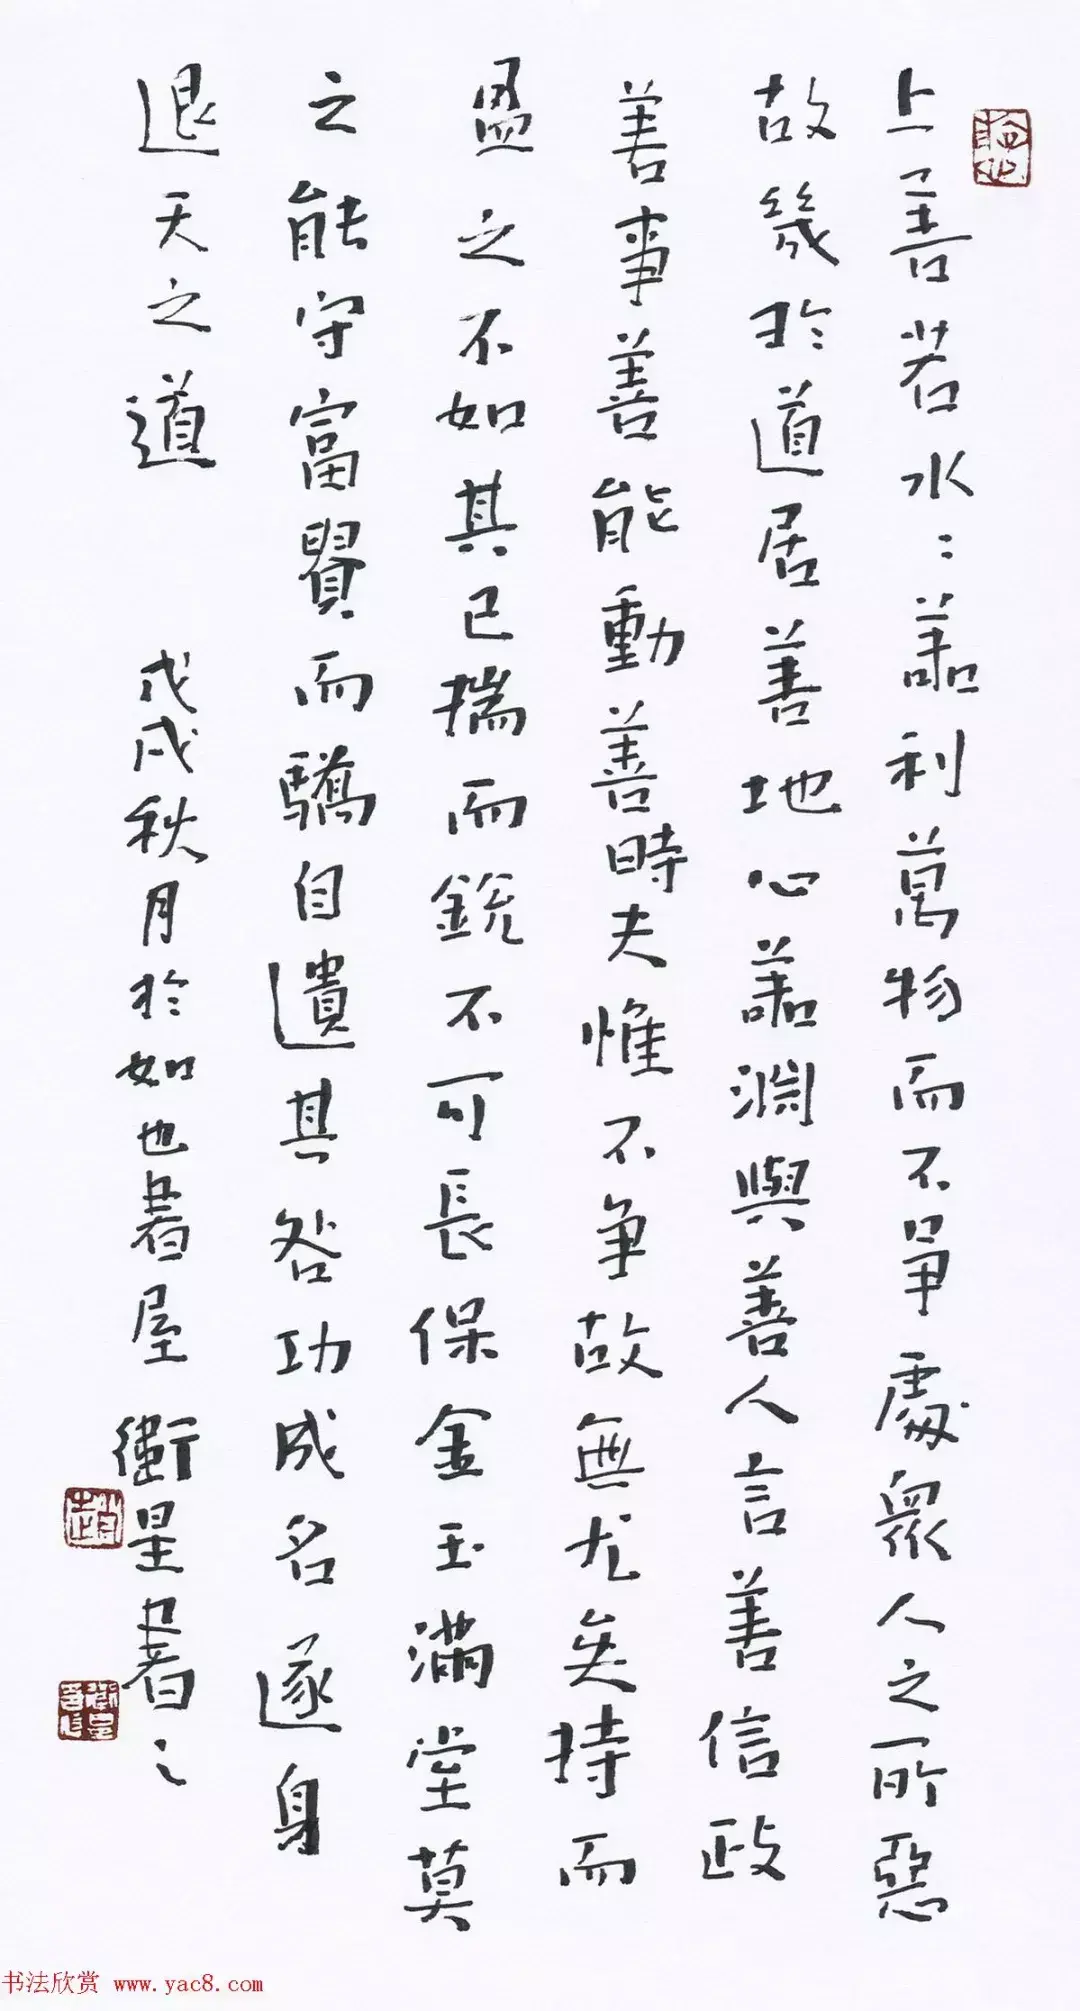 上善若水=善利萬物而不爭處眾人之所惡
故幾於道居善地心善淵與善人言善信政
善事善能動善時夫惟不爭故無尤矣持而
盈之不如其已揣而銳不可長保金玉滿堂莫
之能守富貴而驕自遺其咎功成名遂身
退天之道
戊戌秋月於如也書屋 衛星書之
趙
书法欣赏 www.yac8.com